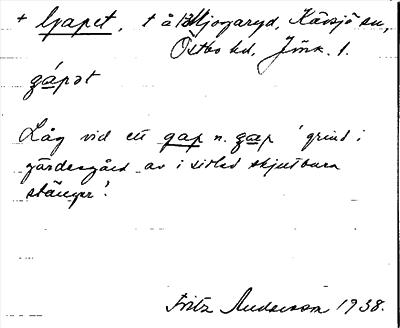 + Gapet, t å 1³ Mjogaryd, Kävsjö sn,
Östbo hd, Jönk. l.
gápət
Låg vid ett gap n. gap 'grind i
gärdesgård av i sidled skjutbara
stänger'.
Fritz Andersson 1938.